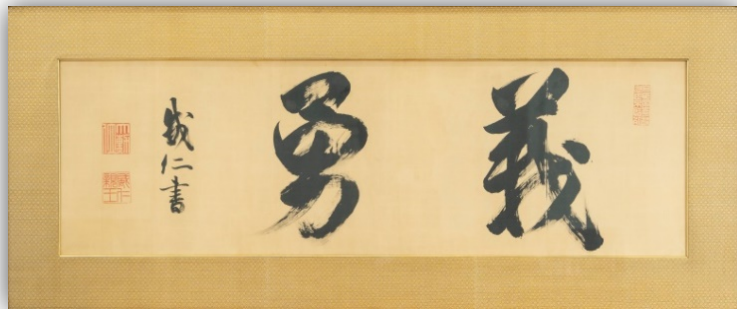 義勇
威仁書